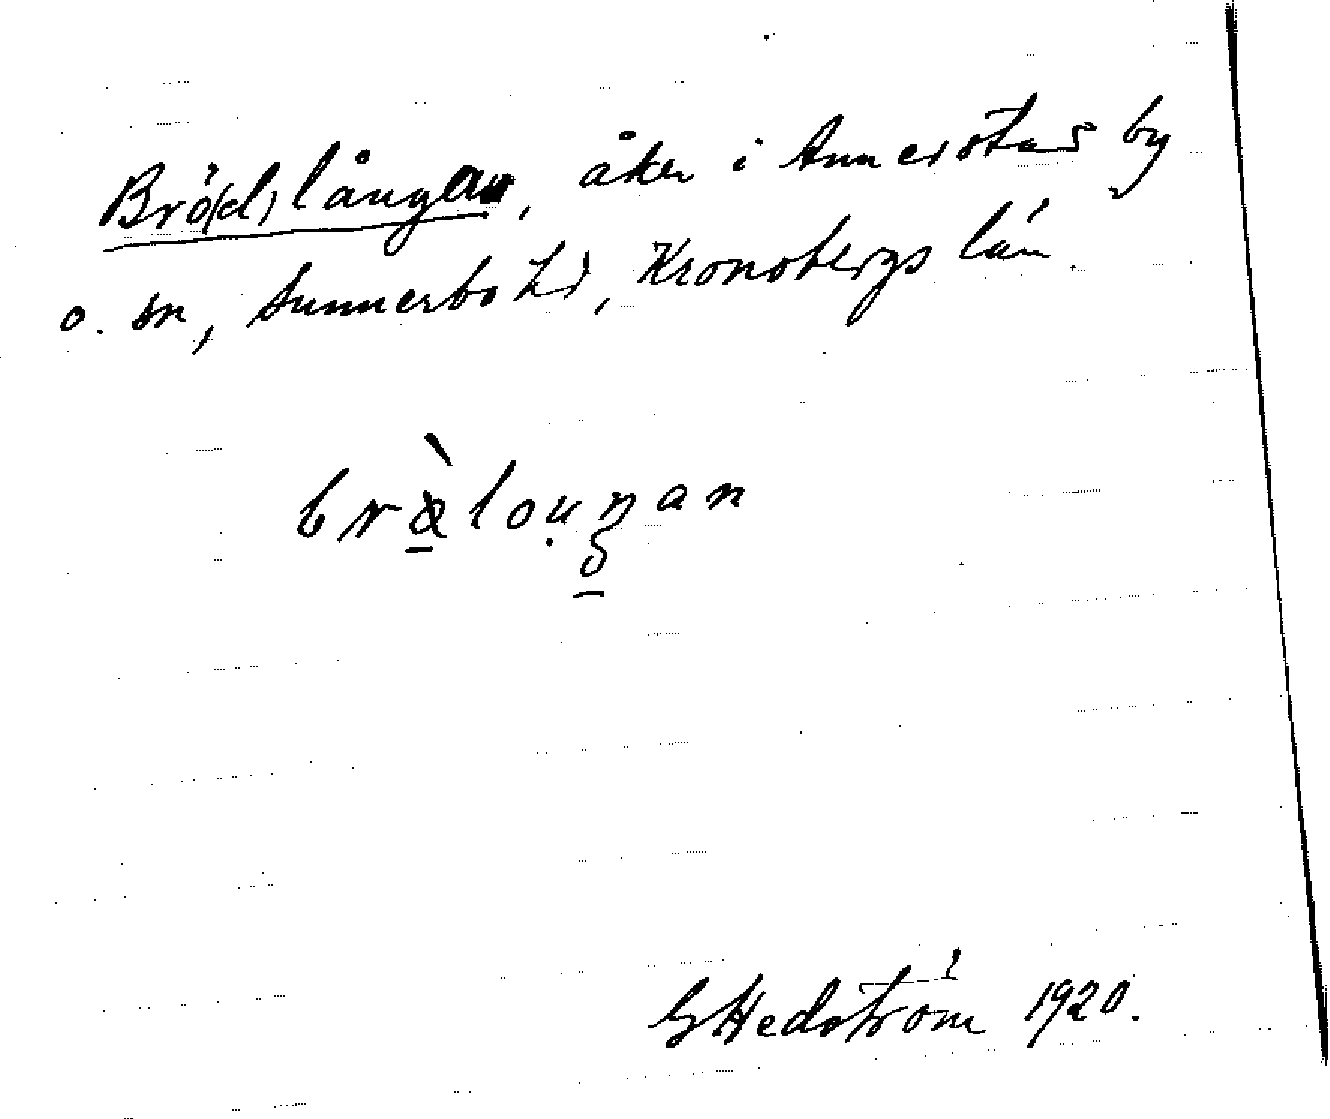 Brö(d)långan, åker i Annerstad by
o. sn, Sunnerbo hd, Kronobergs län.
bræ̀loụŋan
GHedström 1920.